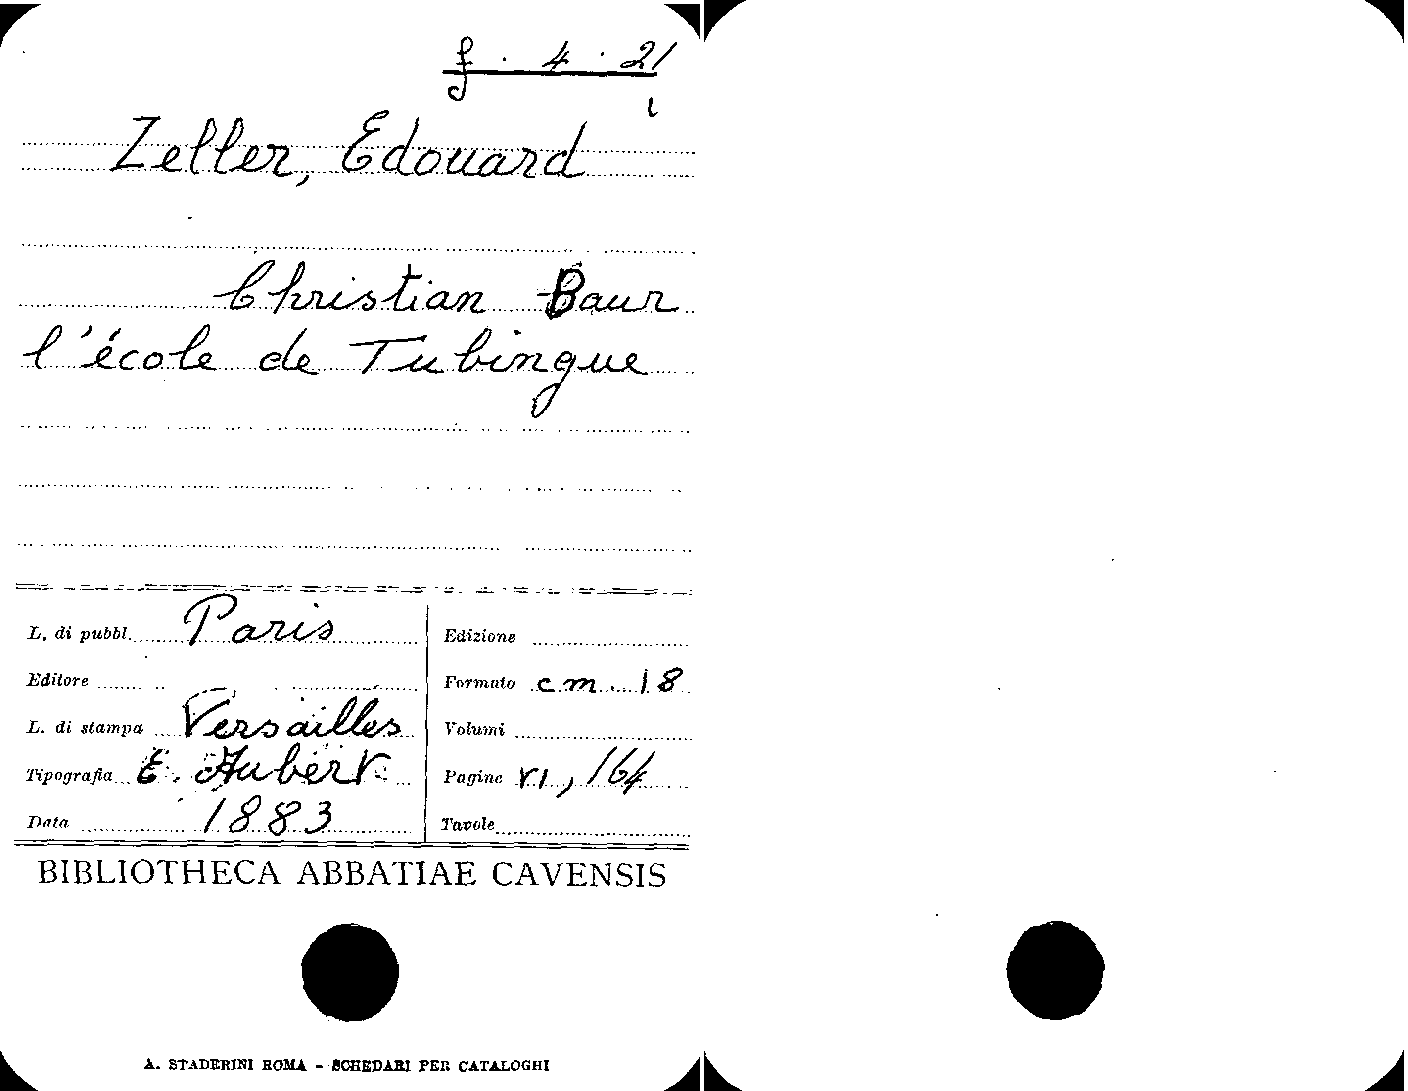 f. 4. 21
1
Zeller, Edouard
Christian Baur
l'école de Tubingue
L. di pubbl. Paris
Editore
L. di stampa Versailles
Tipografia E. Aubert
Data 1883
Edizione
Formato cm. 18
Volumi
Pagine VI, 164
Tavole
BIBLIOTHECA ABBATIAE CAVENSIS
A. STADERINI ROMA - SCHEDARI PER CATALOGHI